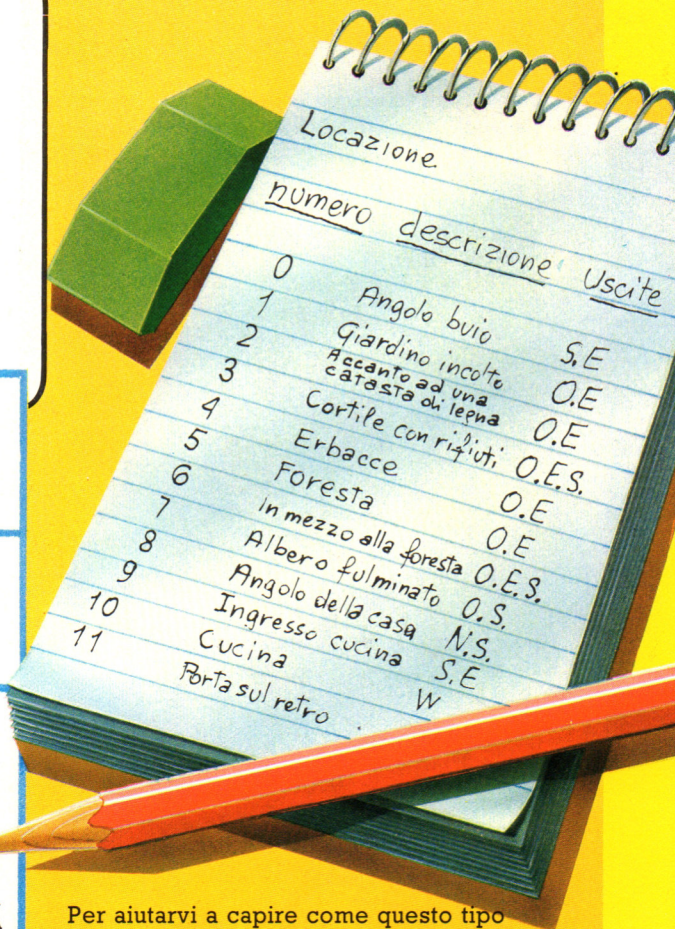 Locazione
numero descrizione Uscite
0 Angolo buio S,E
1 Giardino incolto O.E
2 Accanto ad una
catasta di legna O.E
3 Cortile con rifiuti O.E.S.
4 Erbacce O.E
5 Foresta O.E
6 in mezzo alla foresta O.E.S.
7 Albero fulminato O.S.
8 Angolo della casa N.S.
9 Ingresso cucina S.E
10 Cucina W
11 Porta sul retro
Per aiutarvi a capire come questo tipo